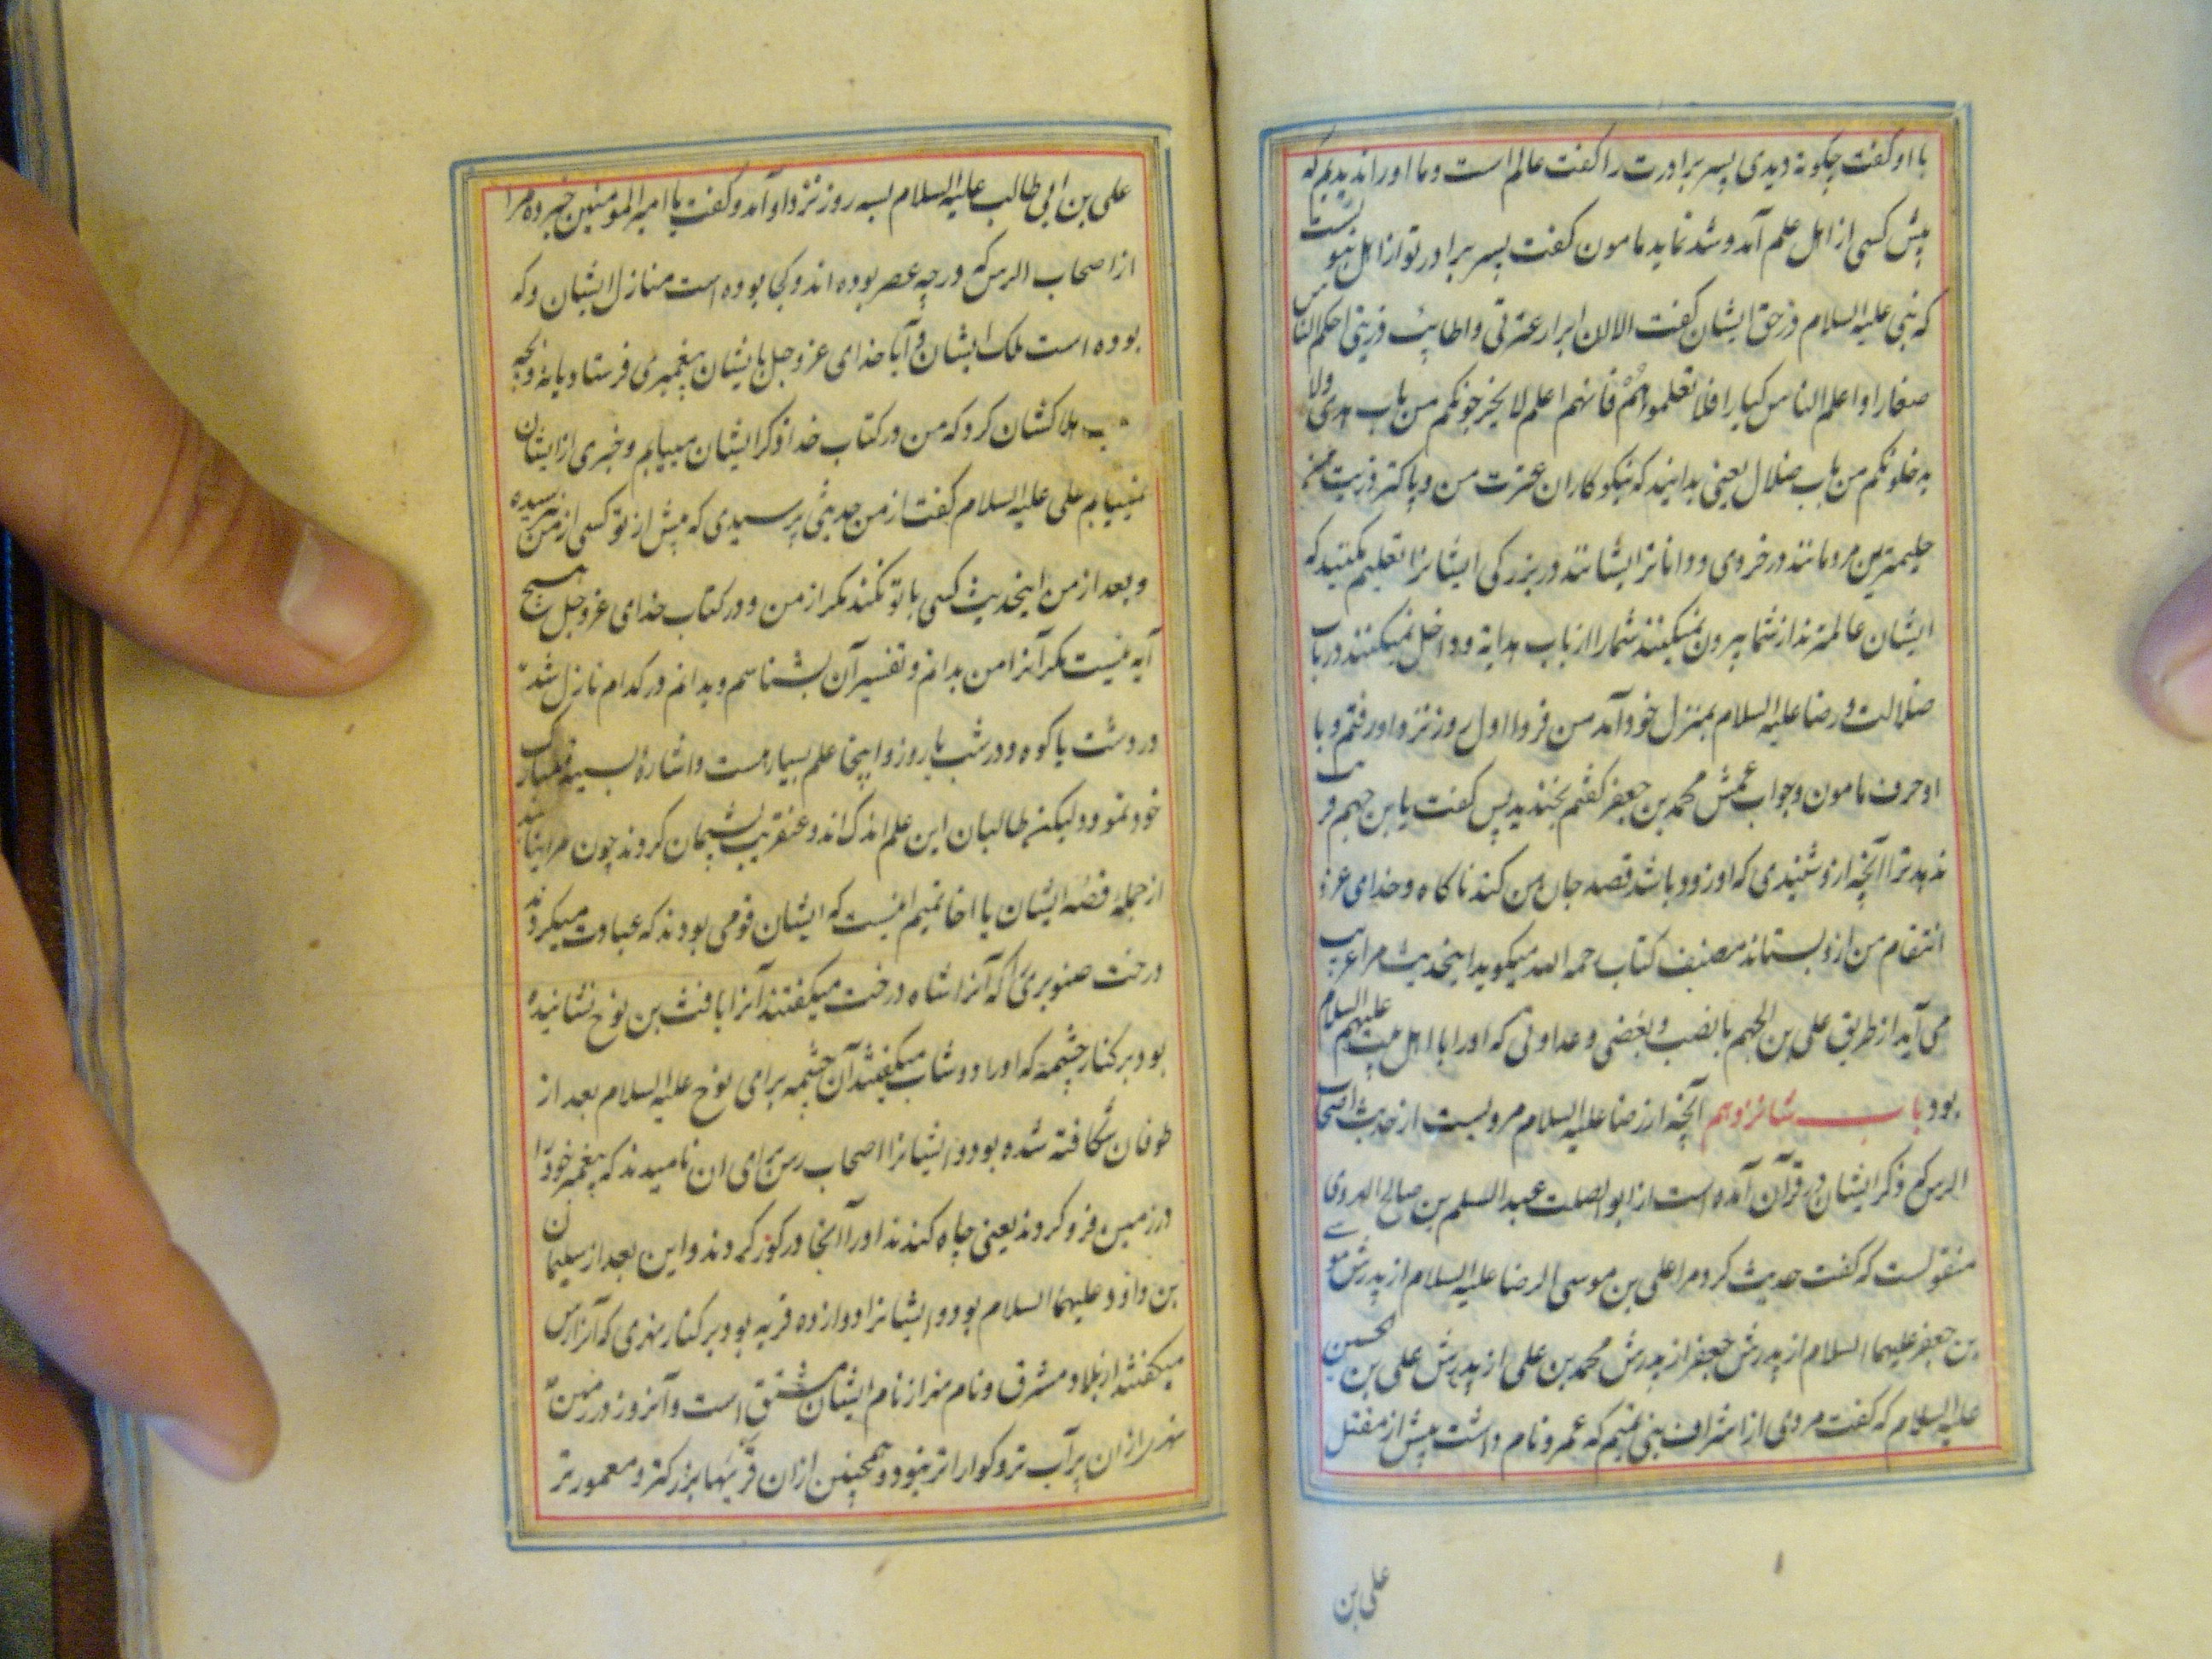 با او گفت چگونه دیدی پسر برادرت را گفت عالم است و ما اورا ندیدیم که
پیش کسی از اهل علم آمد و شد نماید مامون گفت پسر برادر تو از اهل بیت
که نبی علیه السلام در حق ایشان گفت الا ان ابرار عترتی و اطایب ذریتی احکم الناس
صغارا و اعلم الناس کبارا فلا تعلموهم فانهم اعلم لا یخرجونکم من باب هدی ولا
یدخلونکم من باب ضلال یعنی بدانید که نیکوکاران عترت من و پاکتر ذریت من
حلیمترین مردمانند در خردی و داناتر ایشانند در بزرگی ایشانرا تعلیم مکنید که
ایشان عالمترند از شما بیرون نمیکنند شما را از باب هدایة و داخل نمیکنند در باب
ضلالت و رضا علیه السلام بمنزل خود آمد من فردا اول روز نزد او رفتم و با
او حرف مامون و جواب عمش محمد بن جعفر گفتم بخندید پس گفت یا بن جهم فریب
ندهد ترا آنچه ازو شنیدی که او زود باشد قصد جان من کند ناگاه و خدای عزو
انتقام من ازو بستاند مصنف کتاب رحمه الله میگوید اینحدیث مرا غریب
می آید از طریق علی بن الجهم با نصب و بغضی و عداوتی که او را با اهل بیت علیهم السلام
بود باب شانزدهم آنچه از رضا علیه السلام مرویست از حدیث اصحاب
الرس که ذکر ایشان در قرآن آمده است از ابو الصلت عبد السلم بن صالح الهروی
منقولست که گفت حدیث کرد مرا علی بن موسی الرضا علیه السلام از پدرش موسی
بن جعفر علیهما السلام از پدرش جعفر از پدرش محمد بن علی از پدرش علی بن الحسین
علیه السلام که گفت مردی از اشراف بنی تمیم که عمرو نام داشت پیش از مقتل
علی بن
علی بن ابی طالب علیه السلام بسه روز نزد او آمد و گفت یا امیر المومنین خبر ده مرا
از اصحاب الرس که در چه عصر بوده اند و کجا بوده است منازل ایشان و که
بوده است ملک ایشان و آیا خدای عز و جل بایشان پیغمبری فرستاد یا نه و بچه
هلاکشان کرد که من در کتاب خدا ذکر ایشان مییابم و خبری از ایشان
نمییابم علی علیه السلام گفت از من حدیثی پرسیدی که پیش از تو کسی از من نپرسیده
و بعد از من اینحدیث کسی با تو نکند مگر از من و در کتاب خدای عز و جل هیچ
آیه نیست مگر آنرا من بدانم و تفسیر آن بشناسم و بدانم در کدام نازل شد
در دشت یا کوه و در شب یا روز و اینجا علم بسیار هست و اشاره بسینه مبارک
خود نمود ولیکن طالبان این علم اندک اند و عنقریب پشیمان گردند چون مرا نیابند
از جمله قصه ایشان یا اخا تمیم اینست که ایشان قومی بودند که عبادت میکردند
درخت صنوبری که آنرا شاه درخت میگفتند آنرا یافث بن نوح نشانیده
بود بر کنار چشمه که اورا دوشاب میگفتند آن چشمه برای نوح علیه السلام بعد از
طوفان شکافته شده بود و ایشانرا اصحاب رس برای ان نامیدند که پیغمبر خود را
در زمین فرو کردند یعنی چاه کندند او را آنجا در گور کردند و این بعد از سلیمان
بن داود علیهما السلام بود و ایشانرا دوازده قریه بود بر کنار نهری که آنرا رس
میگفتند از بلاد مشرق و نام نهر از نام ایشان مشتق است و آنروز در زمین
نهر از ان پر آب تر و گواراتر نبود و همچنین ازان قریها بزرگتر و معمورتر